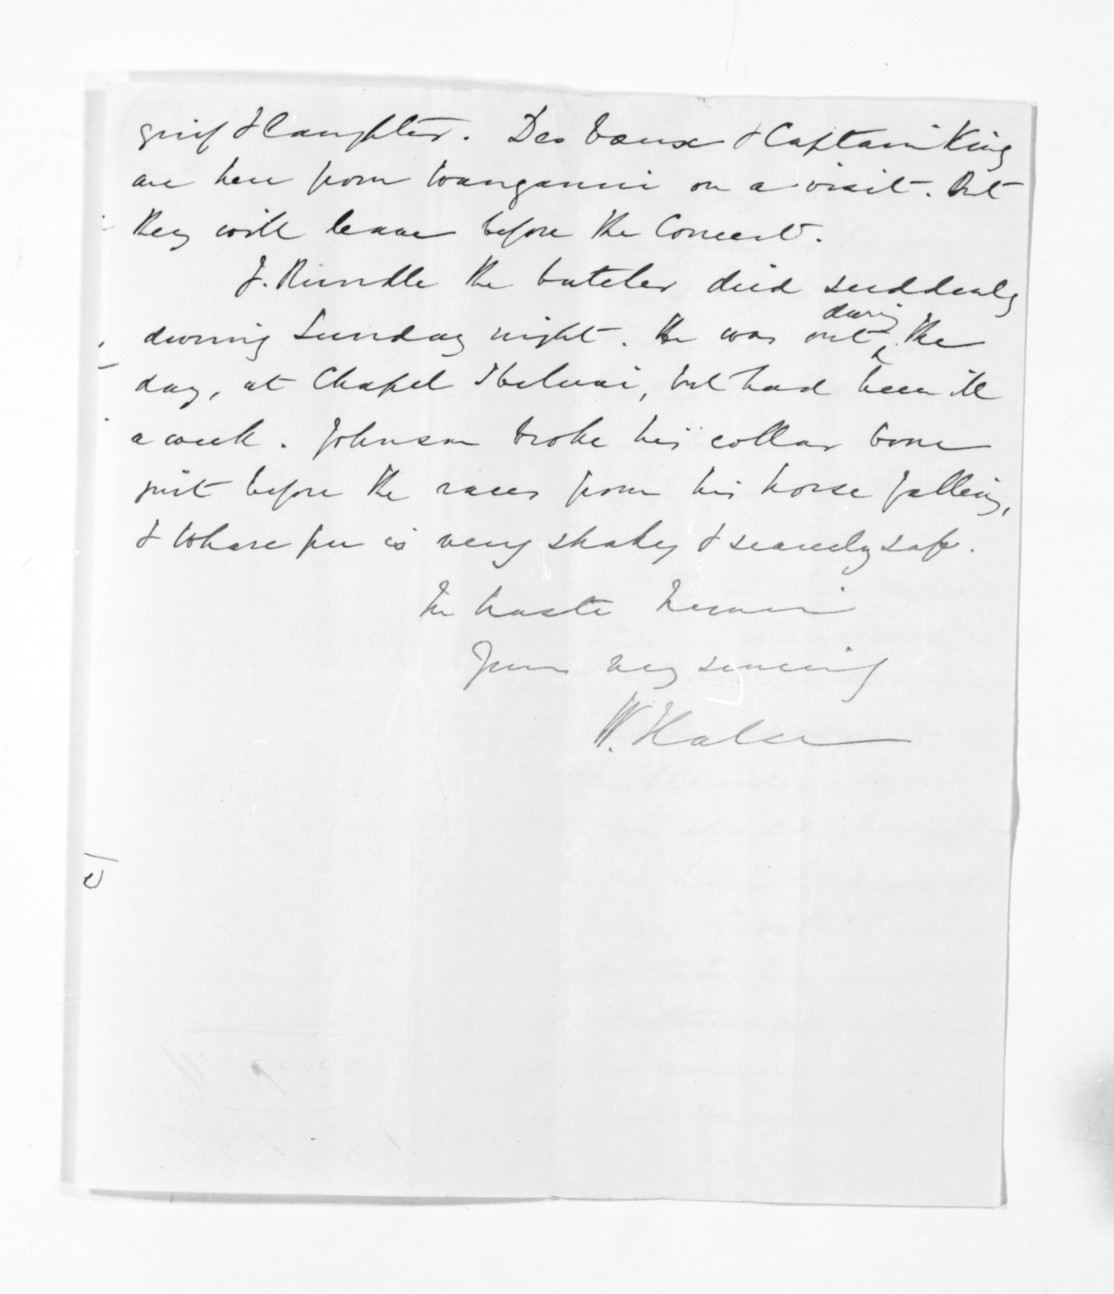 grief & laughter. Des Vaux & Captain King
are here from Wanganui on a visit. But
they will leave before the Concert.
J. Rundle the butcher died suddenly
during Sunday night. He was out during the
day, at Chapel, but had been ill
a week. Johnson broke his collar bone
just before the races from his horse falling,
& Wharepu is very shaky & scarcely safe.
In haste Remain
Yours very sincerely
W. Halse